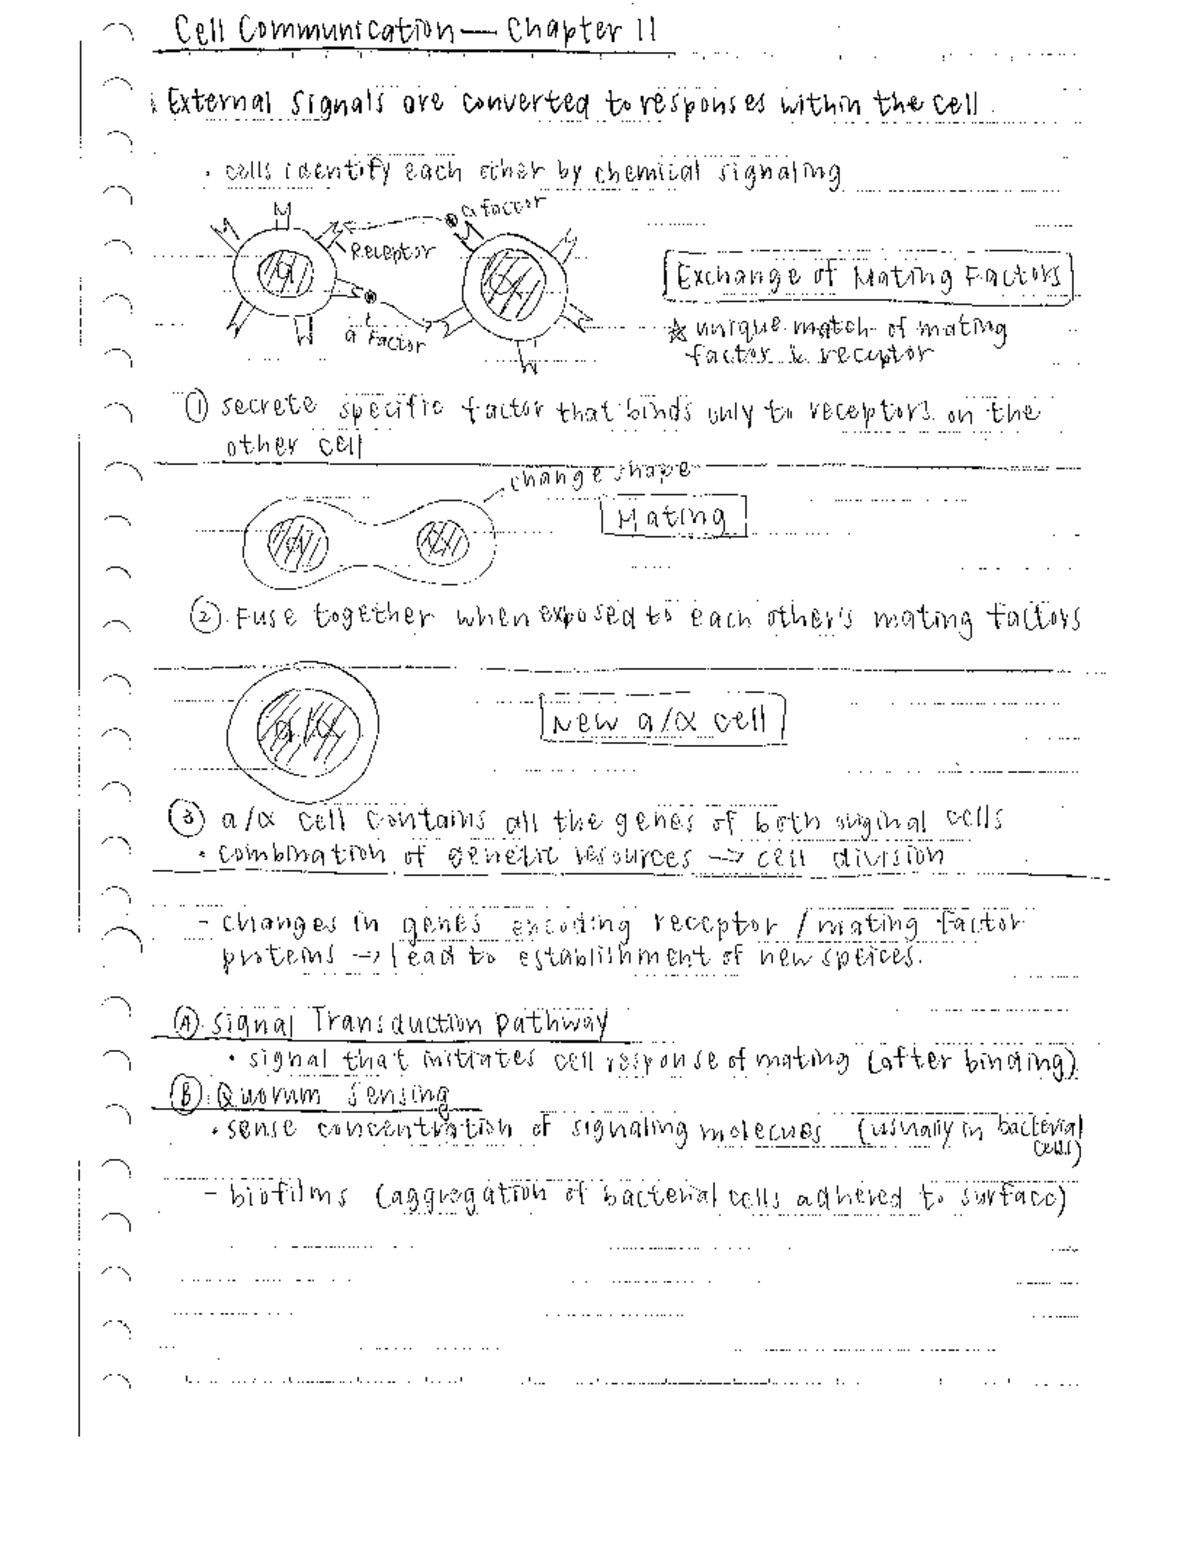 Cell Communication — Chapter 11
External signals are converted to responses within the cell.
· cells identify each other by chemical signaling
α factor
Receptor
a factor
Exchange of Mating Factors
☆ unique match of mating
factor & receptor
① secrete specific factor that binds only to receptors on the
other cell
change shape
Mating
② Fuse together when exposed to each other's mating factors
a/α
New a/α cell
③ a/α cell contains all the genes of both original cells
· combination of genetic resources —> cell division
- changes in genes encoding receptor / mating factor
proteins —> lead to establishment of new speices.
Ⓐ Signal Transduction pathway
· signal that initiates cell response of mating (after binding)
Ⓑ Quorum Sensing
· sense concentration of signaling molecues (usually in bacterial
cells)
- biofilms (aggregation of bacterial cells adhered to surface)